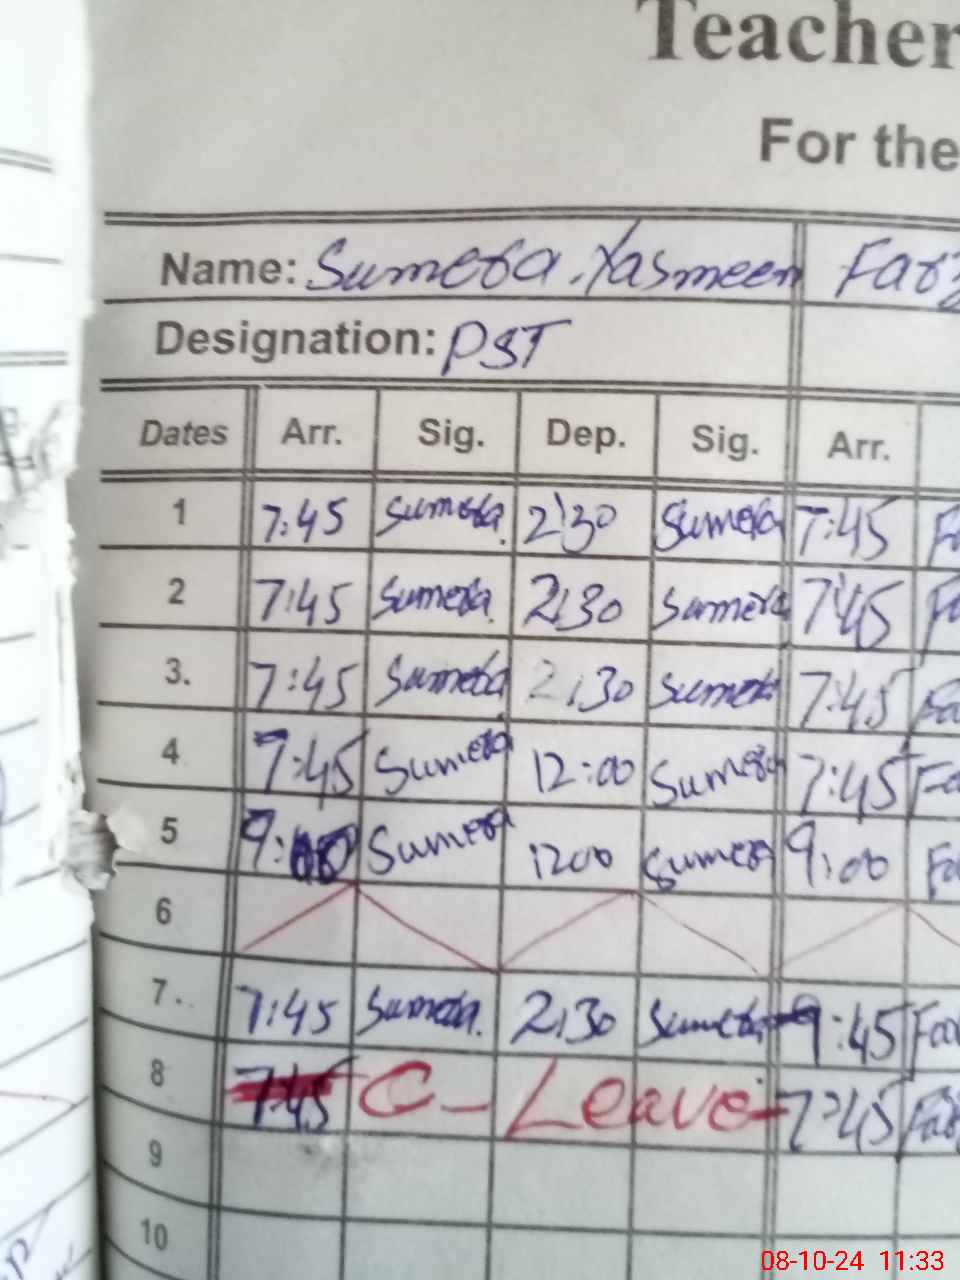 Teacher
For the
Name: Sumera Yasmeen
Designation: PST
Dates Arr. Sig. Dep. Sig. Arr.
1 7:45 Sumera 2:30 Sumera 7:45
2 7:45 Sumera 2:30 Sumera 7:45
3. 7:45 Sumera 2:30 Sumera 7:45
4 7:45 Sumera 12:00 Sumera 7:45
5 9:00 Sumera 1200 Sumera 9:00
6
7.. 7:45 Sumera 2:30 Sumera 9:45
8 7:45 C-Leave 7:45
9
10
08-10-24 11:33